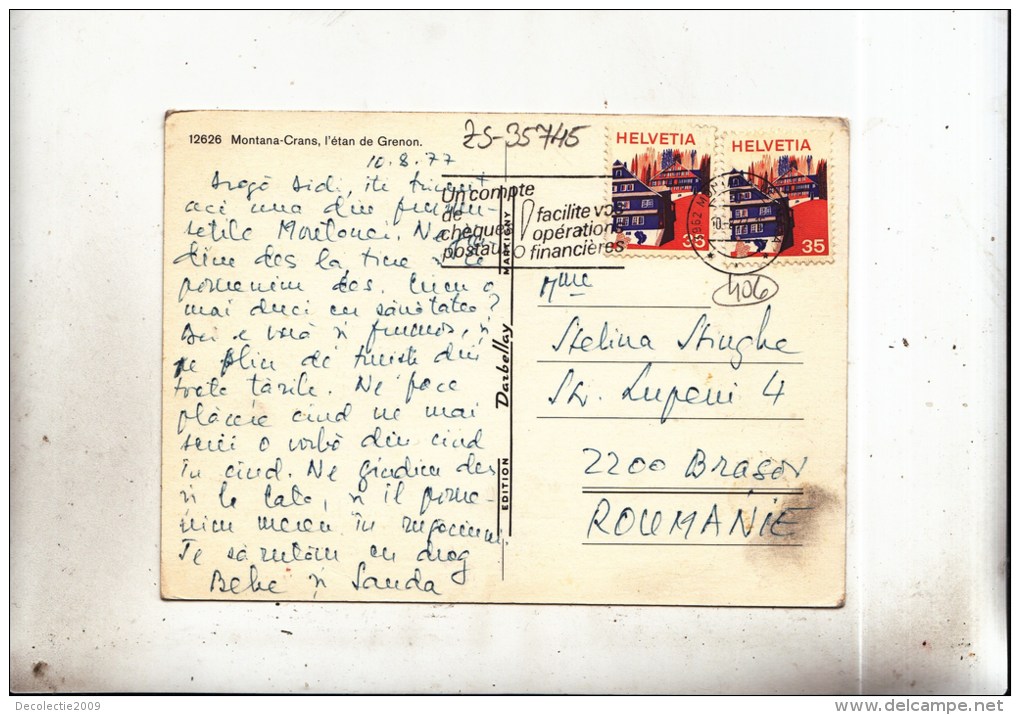 12626 Montana-Crans, l'étan de Grenon.
ZS-35745
10.8.77
Dragă Didi, iți trimit
aci una din frumu-
sețile Montanei. Ne gîn-
dim des la tine și te
pomenim des. Cum o
mai duci cu sănătatea?
Aci e vară și frumos, și
e plin de turiști din
toate țările. Ne face
plăcere cînd ne mai
scrii o vorbă din cînd
în cînd. Ne gîndim des
și la tata, și îl pome-
nim mereu în rugăciuni.
Te sărutăm cu drag
Bebe și Sanda
Un compte
de
chèques
postaux
facilite vos
opérations
financières
HELVETIA
35
HELVETIA
35
3962 MO
10
406
EDITION Darbellay MARTIGNY
Mme
Stelina Stinghe
Str. Lupeni 4
2200 Brașov
ROUMANIE
Decolectie2009
delcampe.net